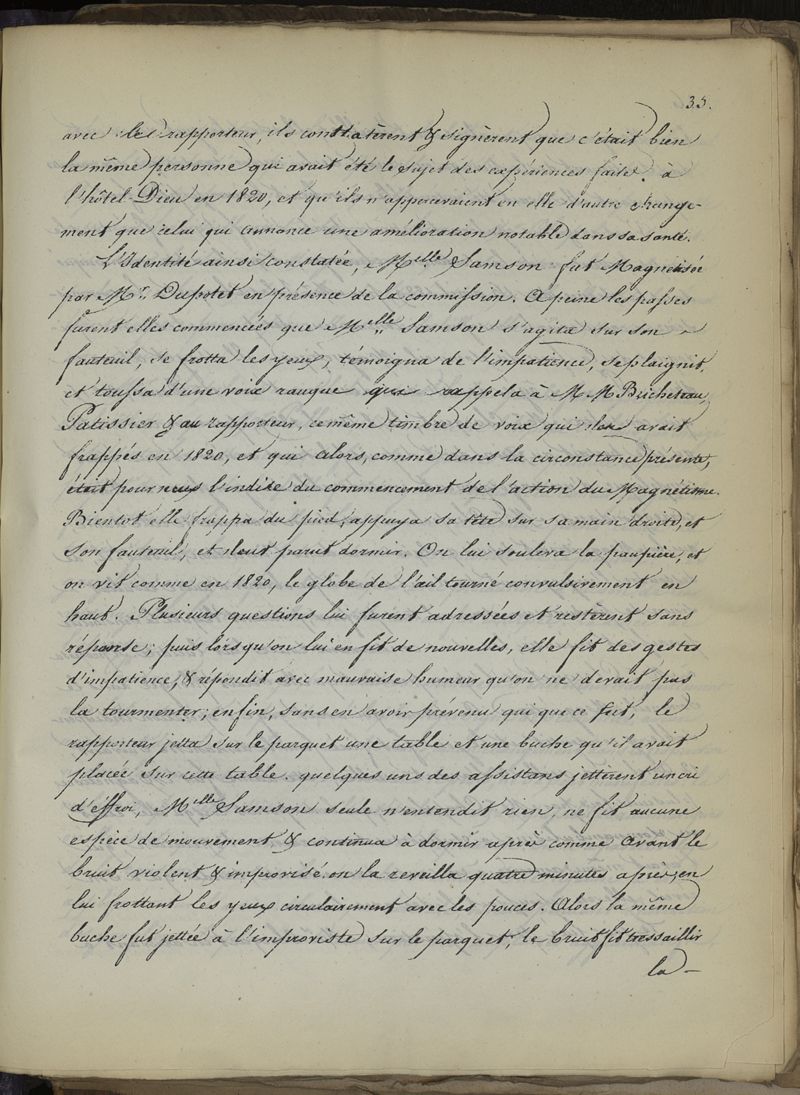 35.
avec les rapporteur, ils constatèrent & signèrent que c'était bien
la même personne qui avait été le sujet des expériences faites à
l'hôtel-Dieu en 1820, et qu'ils n'appercevaient en elle d'autre change-
ment que celui qui annonce une amélioration notable dans sa santé.
L'Identité ainsi constatée, Melle Samson fut Magnétisée
par Mr. Dupotet en présence de la commission. A peine les passes
furent elles commencées que Melle Samson s'agita sur son
fauteuil, se frotta les yeux, témoigna de l'impatience, se plaignit,
et toussa d'une voix rauque qui rappela à M M Bricheteau,
Patissier & au rapporteur, ce même timbre de voix qui les avait
frappés en 1820, et qui alors, comme dans la circonstance présente,
était pour eux l'indice du commencement de l'action du Magnétisme.
Bientot elle frappa du pied, appuya sa tête sur sa main droite, et
son fauteuil, et leur parut dormir. On lui souleva la paupière, et
on vit comme en 1820, le globe de l'œil tourné convulsivement en
haut. Plusieurs questions lui furent adressées et restèrent sans
réponse; puis lorsqu'on lui en fit de nouvelles, elle fit des gestes
d'impatience, & répondit avec mauvaise humeur qu'on ne devait pas
la tourmenter; enfin, sans en avoir prévenu qui que ce fut, le
rapporteur jetta sur le parquet une table et une buche qu'il avait
placée sur cette table. quelques uns des assistans jettèrent un cri
d'éffroi, Melle Samson seule n'entendit rien, ne fit aucune
espèce de mouvement & continua à dormir après comme avant le
bruit violent & improvisé. on la reveilla quatre minutes après, en
lui frottant les yeux circulairement avec les pouces. Alors la même
buche fut jettée à l'improviste sur le parquet, le bruit fit tressaillir
la -